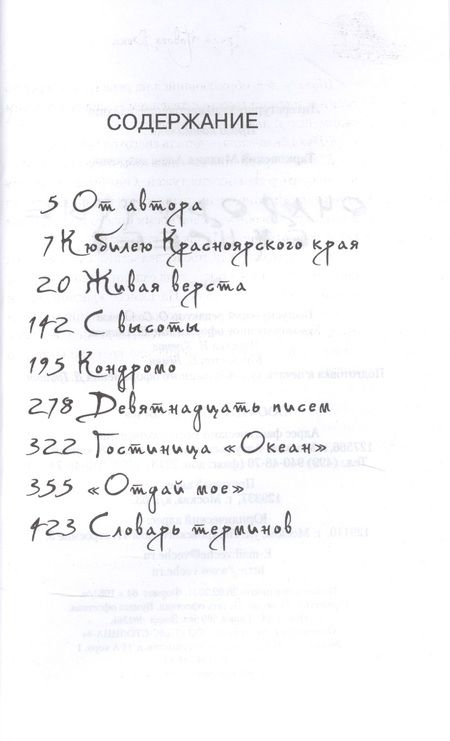 СОДЕРЖАНИЕ
5 От автора
7 К юбилею Красноярского края
20 Живая верста
142 С высоты
195 Кондромо
278 Девятнадцать писем
322 Гостиница «Океан»
355 «Отдай мое»
423 Словарь терминов